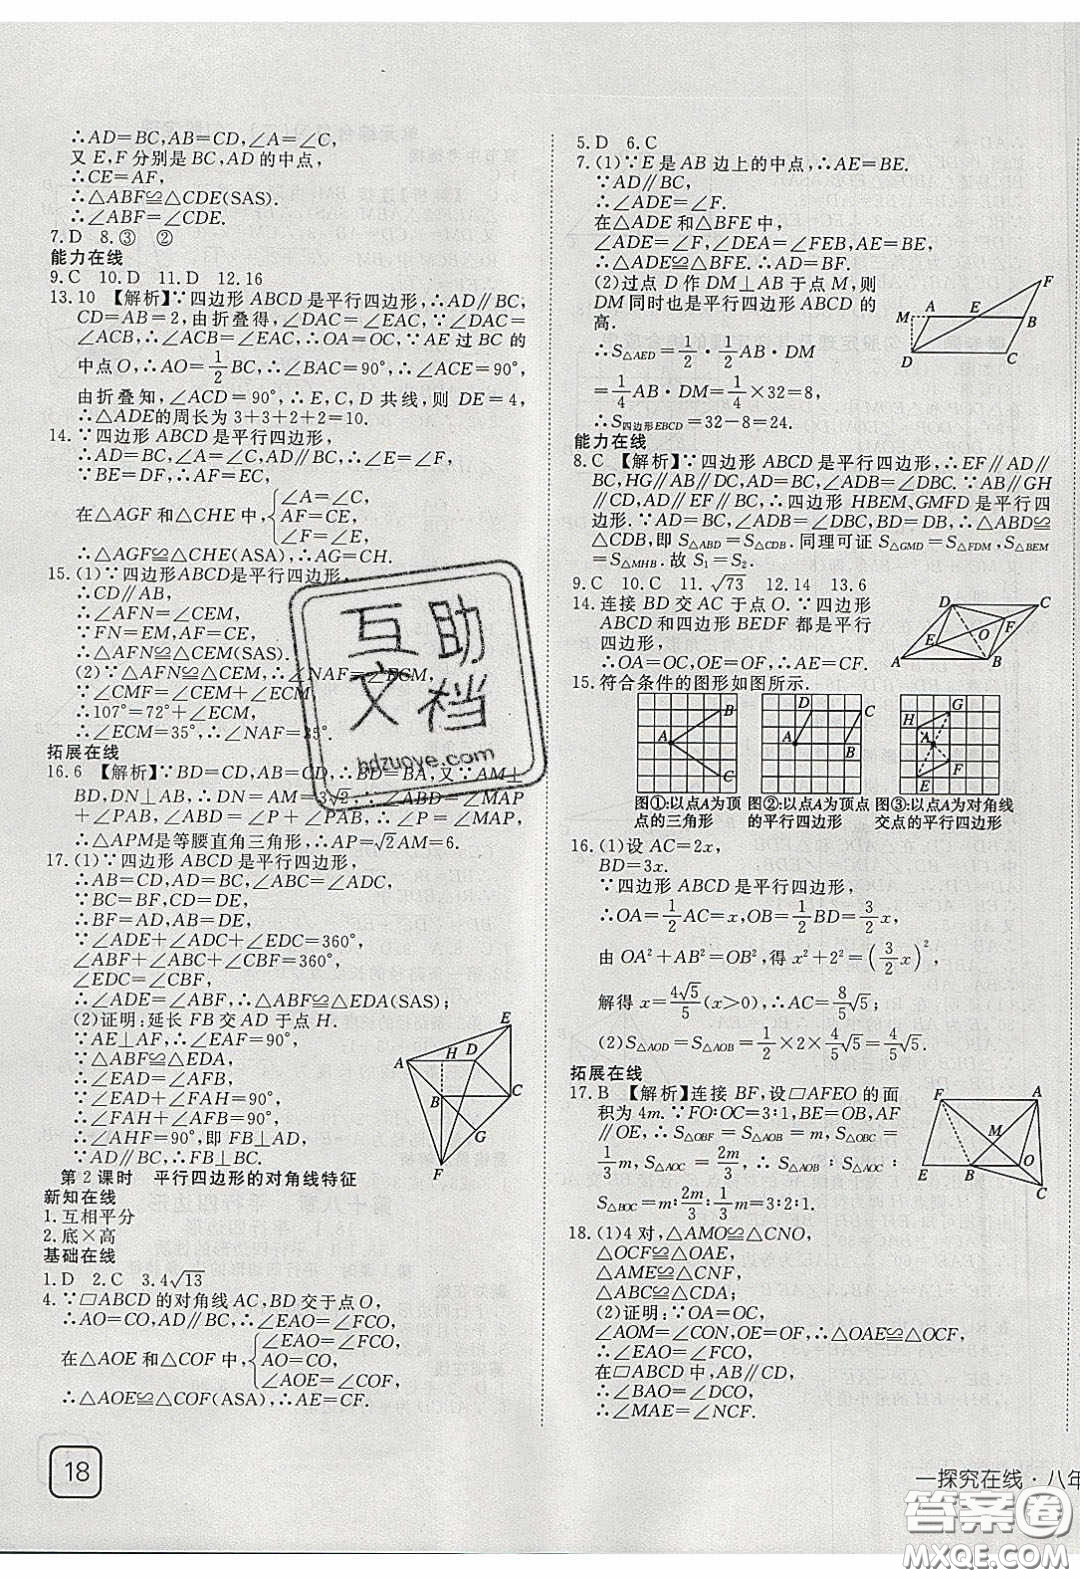 ∴AD=BC,AB=CD,∠A=∠C,
又 E,F 分别是 BC,AD 的中点,
∴CE=AF,
∴△ABF≌△CDE(SAS).
∴∠ABF=∠CDE.
7.D 8.③ ②
能力在线
9.C 10.D 11.D 12.16
13.10 【解析】∵四边形 ABCD 是平行四边形,∴AD∥BC,
CD=AB=2,由折叠得,∠DAC=∠EAC,∵∠DAC=
∠ACB,∴∠ACB=∠EAC,∴OA=OC,∵AE 过 BC 的
中点 O,∴AO=1/2BC,∴∠BAC=90°,∴∠ACE=90°,
由折叠知,∠ACD=90°,∴E,C,D 共线,则 DE=4,
∴△ADE的周长为 3+3+2+2=10.
14.∵四边形 ABCD 是平行四边形,
∴AD∥BC,∠A=∠C,∴∠E=∠F,
∵BE=DF,∴AF=EC,
在△AGF 和△CHE 中,{∠A=∠C,
AF=CE,
∠F=∠E,
∴△AGF≌△CHE(ASA),∴AG=CH.
15.(1)∵四边形ABCD是平行四边形,
∴CD∥AB,
∴∠AFN=∠CEM,
∵FN=EM,AF=CE,
∴△AFN≌△CEM(SAS).
(2)∵△AFN≌△CEM,∴∠NAF=∠ECM,
∵∠CMF=∠CEM+∠ECM,
∴107°=72°+∠ECM,
∴∠ECM=35°,∴∠NAF=35°.
拓展在线
16.6 【解析】∵BD=CD,AB=CD,∴BD=BA,又∵AM⊥
BD,DN⊥AB,∴DN=AM=3√2,∴∠ABD=∠MAP
+∠PAB,∠ABD=∠P+∠PAB,∴∠P=∠MAP,
∴△APM是等腰直角三角形,∴AP=√2AM=6.
17.(1)∵四边形 ABCD 是平行四边形,
∴AB=CD,AD=BC,∠ABC=∠ADC,
∵BC=BF,CD=DE,
∴BF=AD,AB=DE,
∵∠ADE+∠ADC+∠EDC=360°,
∠ABF+∠ABC+∠CBF=360°,
∠EDC=∠CBF,
∴∠ADE=∠ABF,∴△ABF≌△EDA(SAS);
(2)证明:延长 FB 交 AD 于点 H.
∵AE⊥AF,∴∠EAF=90°,
∵△ABF≌△EDA,
∴∠EAD=∠AFB,
∵∠EAD+∠FAH=90°,
∴∠FAH+∠AFB=90°,
∴∠AHF=90°,即 FB⊥AD,
∵AD∥BC,∴FB⊥BC.
E
A H D
B C
G
F
第 2 课时 平行四边形的对角线特征
新知在线
1.互相平分
2.底×高
基础在线
1.D 2.C 3.4√13
4.∵□ABCD 的对角线 AC,BD 交于点 O,
∴AO=CO,AD∥BC,∴∠EAO=∠FCO,
在△AOE 和△COF 中,{∠EAO=∠FCO,
AO=CO,
∠AOE=∠COF,
∴△AOE≌△COF(ASA),∴AE=CF.
18
5.D 6.C
7.(1)∵E 是 AB 边上的中点,∴AE=BE.
∵AD∥BC,
∴∠ADE=∠F.
在△ADE 和△BFE 中,
∠ADE=∠F,∠DEA=∠FEB,AE=BE,
∴△ADE≌△BFE.
(2)过点 D 作 DM⊥AB 于点 M,则
DM 同时也是平行四边形 ABCD 的
高.
∴S△AED=1/2·1/2AB·DM
=1/4AB·DM=1/4×32=8,
∴S四边形EBCD=32-8=24.
F
M A E B
D C
能力在线
8.C 【解析】∵四边形 ABCD 是平行四边形,∴EF∥AD∥
BC,HG∥AB∥DC,AD=BC,∠ADB=∠DBC.∵AB∥GH
∥CD,AD∥EF∥BC,∴四边形 HBEM、GMFD 是平行四
边形.∵AD=BC,∠ADB=∠DBC,BD=DB,∴△ABD≌
△CDB,即 S△ABD=S△CDB.同理可证 S△GMD=S△FDM,S△BEM
=S△MHB.故 S1=S2.
9.C 10.C 11.√73 12.14 13.6
14.连接 BD 交 AC 于点 O.∵四边形
ABCD 和四边形 BEDF 都是平行
四边形,
∴OA=OC,OE=OF,∴AE=CF.
D C
E O F
A B
15.符合条件的图形如图所示.
B
A
C
D C
A B
G
H
A
F
E
图①:以点A为顶 图②:以点A为顶点 图③:以点A为对角线
点的三角形 的平行四边形 交点的平行四边形
16.(1)设 AC=2x,
BD=3x.
∵四边形 ABCD 是平行四边形,
∴OA=1/2AC=x,OB=1/2BD=3/2x,
由 OA²+AB²=OB²,得 x²+2²=(3/2x)²,
解得 x=4√5/5(x>0),∴AC=8/5√5;
(2)S△AOD=S△AOB=1/2×2×4/5√5=4/5√5.
拓展在线
17.B 【解析】连接 BF,设□AFEO 的面
积为 4m.∵FO:OC=3:1,BE=OB,AF
∥OE,∴S△OBF=S△AOB=m,S△OBC=
1/3m,S△AOC=2m/3,∴S△AOB:S△AOC:
S△BOC=m:2m/3:1/3m=3:2:1.
F A
M
E B O
C
18.(1)4 对,△AMO≌△CNO,
△OCF≌△OAE,
△AME≌△CNF,
△ABC≌△CDA;
(2)证明:∵OA=OC,
∠AOM=∠CON,OE=OF,∴△OAE≌△OCF,
∴∠EAO=∠FCO,
在□ABCD 中,AB∥CD,
∴∠BAO=∠DCO,
∴∠MAE=∠NCF.
一探究在线·八年
互助
文档
hdzuoye.com
答案圈
MXQE.COM